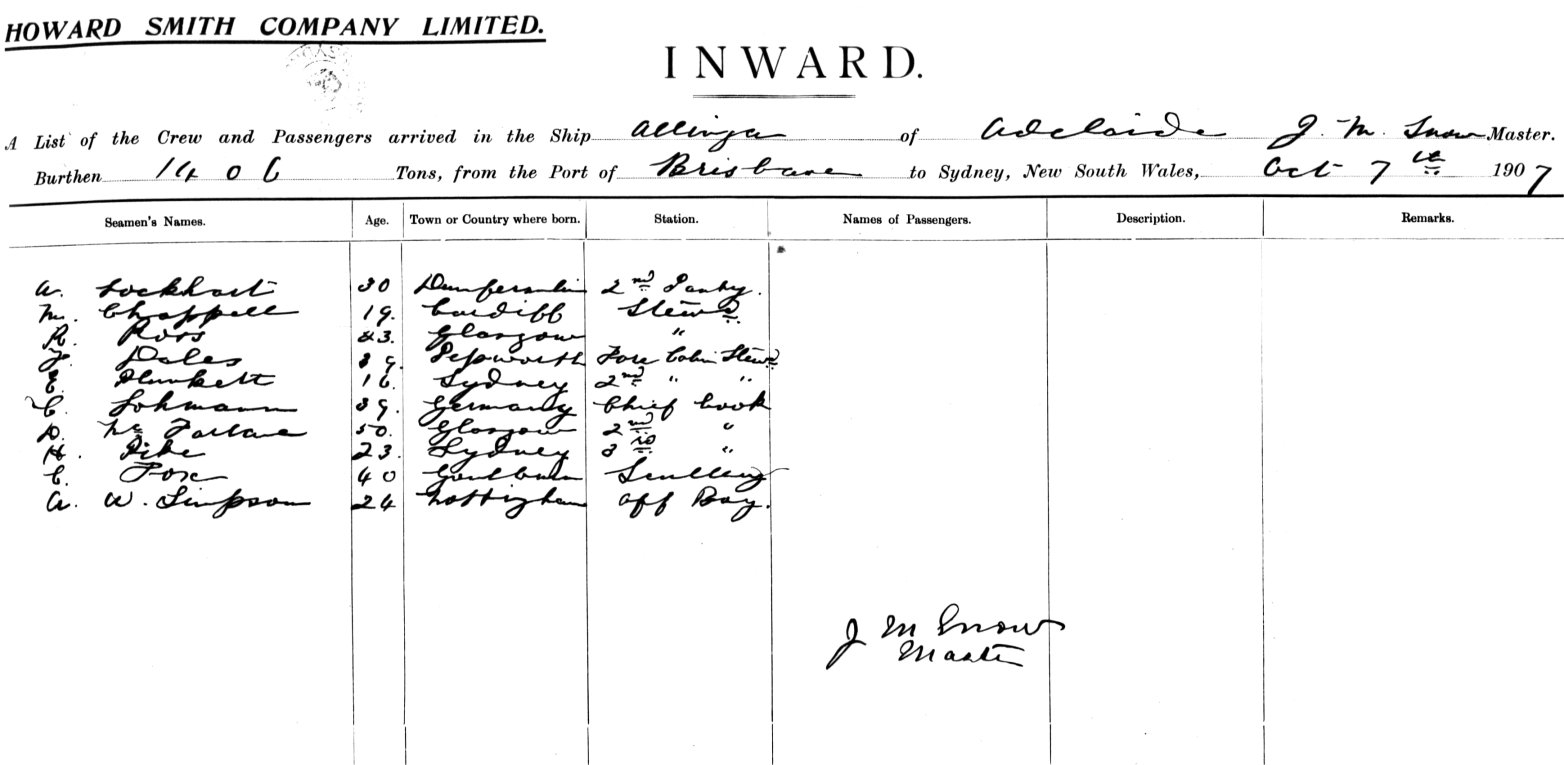 HOWARD SMITH COMPANY LIMITED.
INWARD.
A List of the Crew and Passengers arrived in the Ship Allinga of Adelaide J. M. Snow Master.
Burthen 1406 Tons, from the Port of Brisbane to Sydney, New South Wales, Oct 7th 1907
Seamen's Names. Age. Town or Country where born. Station. Names of Passengers. Description. Remarks.
A. Lockhart 30 Dumfermlin 2nd Pantry.
M. Chappell 19. Cardiff Stewd
R. Ross 23. Glasgow "
Dales 39. Fore Cabin Stewd
E. Plunkett 16. Sydney 2nd " "
C. Lohmann 39. Germany Chief Cook
D. Mc Farlane 50. Glasgow 2nd "
H. Pike 23. Sydney 3rd "
C. Fox 40 Goulburn Scullery
A. W. Simpson 24 Nottingham Off Boy.
J M Snow
Master